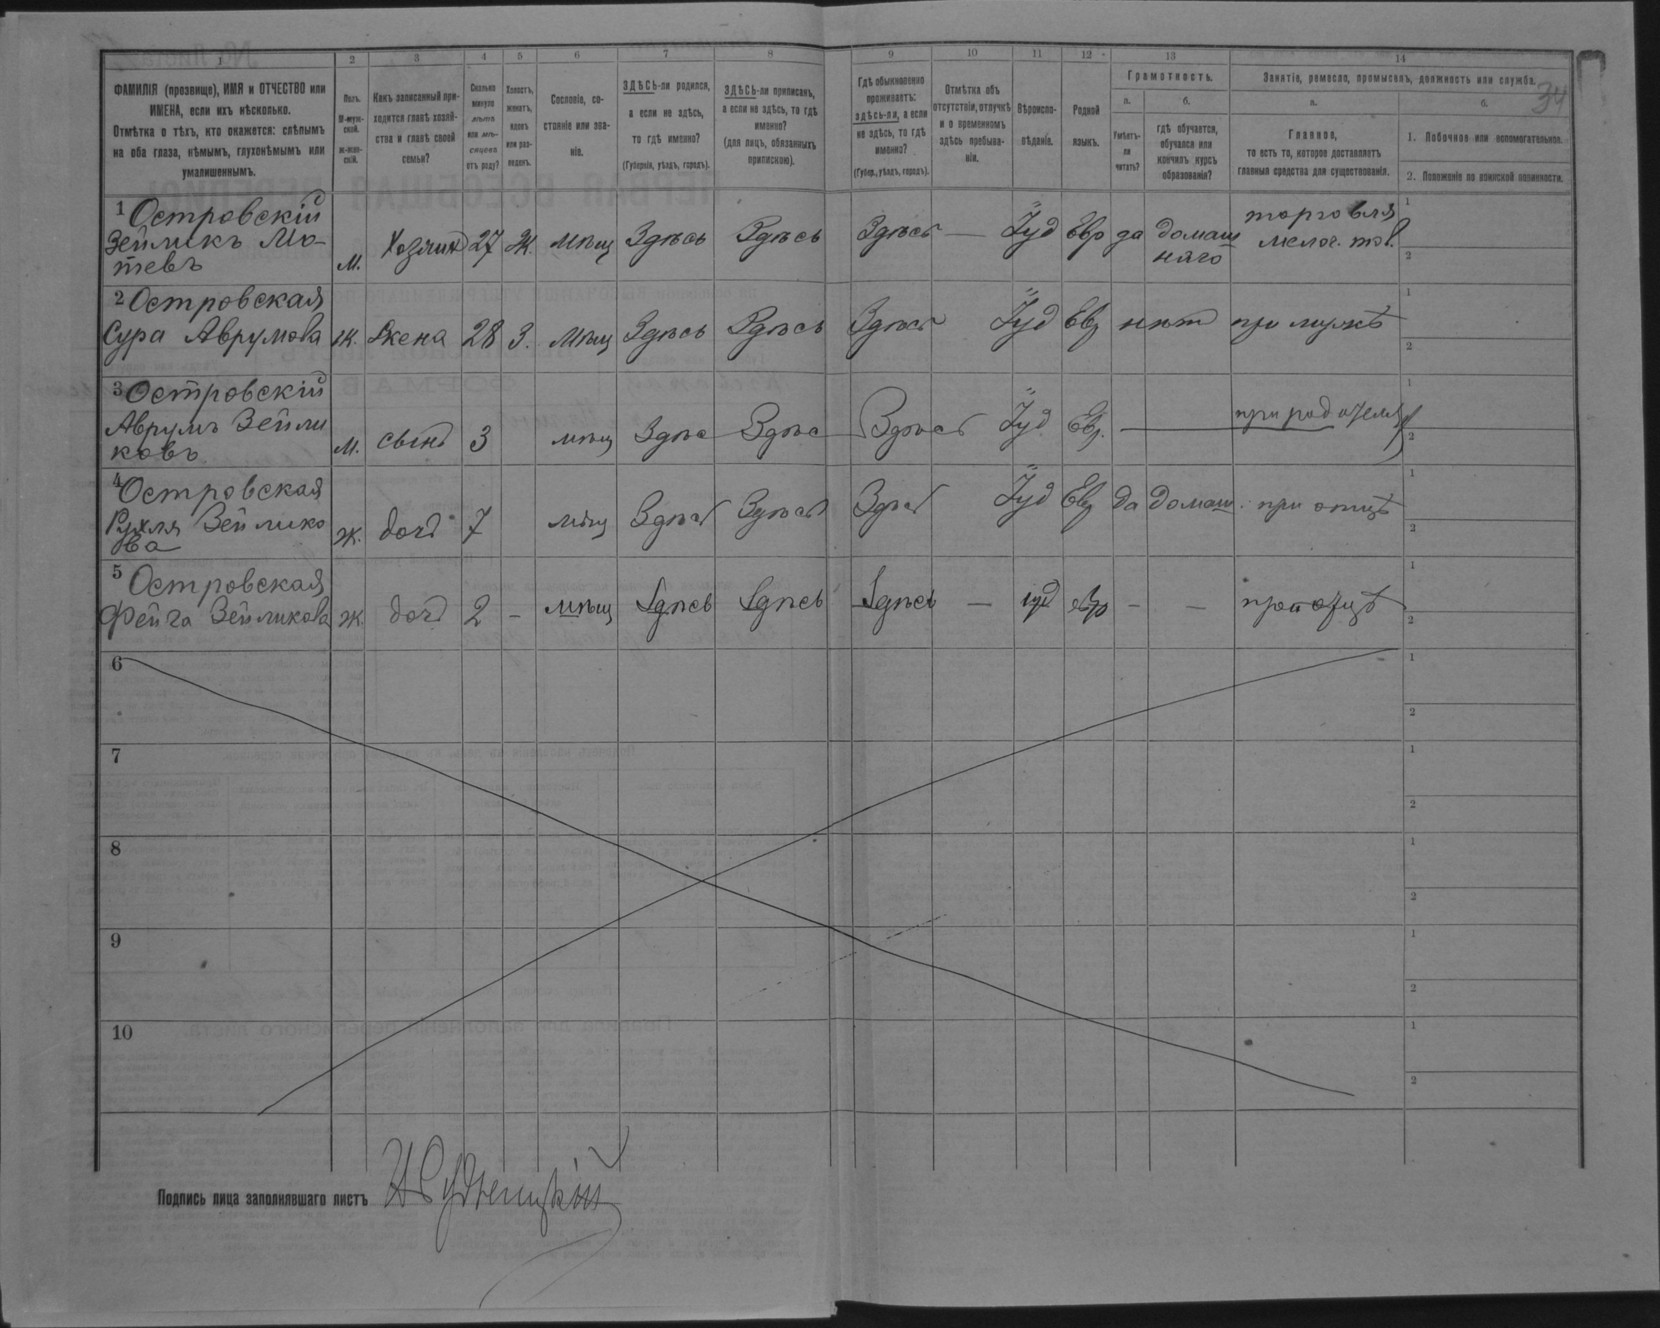 1 2 3 4 5 6 7 8 9 10 11 12 13 14
ФАМИЛІЯ (прозвище), ИМЯ и ОТЧЕСТВО или
ИМЕНА, если ихъ нѣсколько.
Отмѣтка о тѣхъ, кто окажется: слѣпымъ
на оба глаза, нѣмымъ, глухонѣмымъ или
умалишеннымъ.
Полъ.
М-муж-
ской.
Ж-жен-
скій.
Какъ записанный при-
ходится главѣ хозяй-
ства и главѣ своей
семьи?
Сколько
минуло
лѣтъ
или мѣ-
сяцевъ
отъ роду?
Холостъ,
женатъ,
вдовъ
или раз-
веденъ.
Сословіе, со-
стояніе или зва-
ніе.
ЗДѢСЬ-ли родился,
а если не здѣсь,
то гдѣ именно?
(Губернія, уѣздъ, городъ).
ЗДѢСЬ-ли приписанъ,
а если не здѣсь, то гдѣ
именно?
(для лицъ, обязанныхъ
припискою).
Гдѣ обыкновенно
проживаетъ:
здѣсь-ли, а если
не здѣсь, то гдѣ
именно?
(Губер., уѣздъ, городъ).
Отмѣтка объ
отсутствіи, отлучкѣ
и о временномъ
здѣсь пребыва-
ніи.
Вѣроиспо-
вѣданіе.
Родной
языкъ.
Грамотность.
а.
Умѣетъ-
ли
читать?
б.
гдѣ обучается,
обучался или
кончилъ курсъ
образованія?
Занятіе, ремесло, промыселъ, должность или служба.
34
а.
Главное,
то есть то, которое доставляетъ
главныя средства для существованія.
б.
1. Побочное или вспомогательное.
2. Положеніе по воинской повинности.
1 Островскій
Зейликъ Мо-
тевъ
м. Хозяинъ 27 Ж. мѣщ Здѣсь Здѣсь Здѣсь — Іуд Евр да домаш
няго
торговля
мелоч. тов.
1
2
2 Островская
Сура Аврумова ж. жена 28 З. мѣщ Здѣсь Здѣсь Здѣсь Іуд Евр нѣт при мужѣ
1
2
3 Островскій
Аврумъ Зейли
ковъ м. сынъ 3 мѣщ Здѣс Здѣс Здѣсь Іуд Евр. — при родителях
1
2
4 Островская
Рухля Зейлико
ва ж. дочь 7 мѣщ Здѣсь Здѣсь Здѣсь Іуд Евр да домаш. при отцѣ
1
2
5 Островская
Фейга Зейликова ж. дочь 2 - мѣщ Здѣсь Здѣсь Здѣсь — іуд евр - - при отцѣ
1
2
6
1
2
7
1
2
8
1
2
9
1
2
10
1
2
Подпись лица заполнявшаго листъ